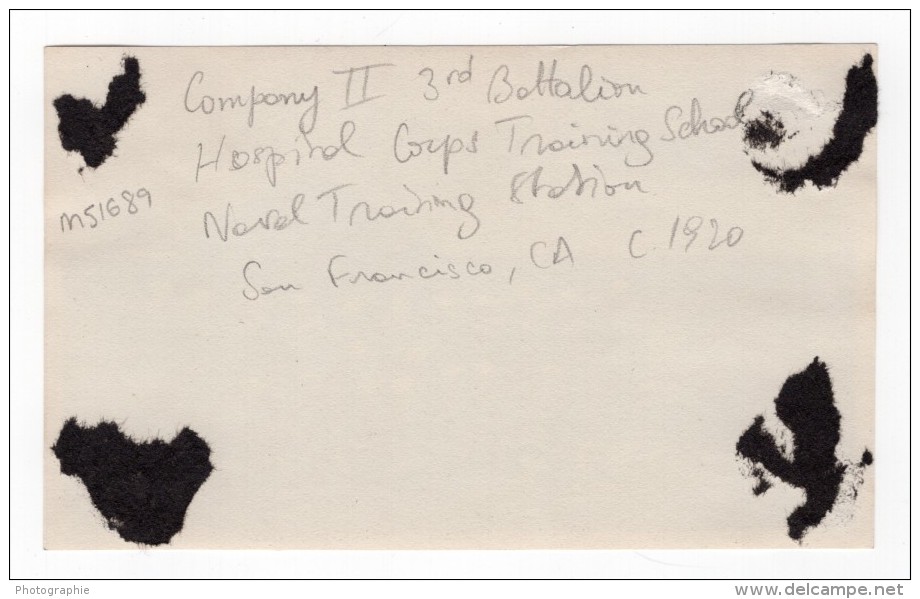 Company II 3rd Battalion
Hospital Corps Training School
M51689
Naval Training Station
San Francisco, CA C. 1920
Photographie
www.delcampe.net